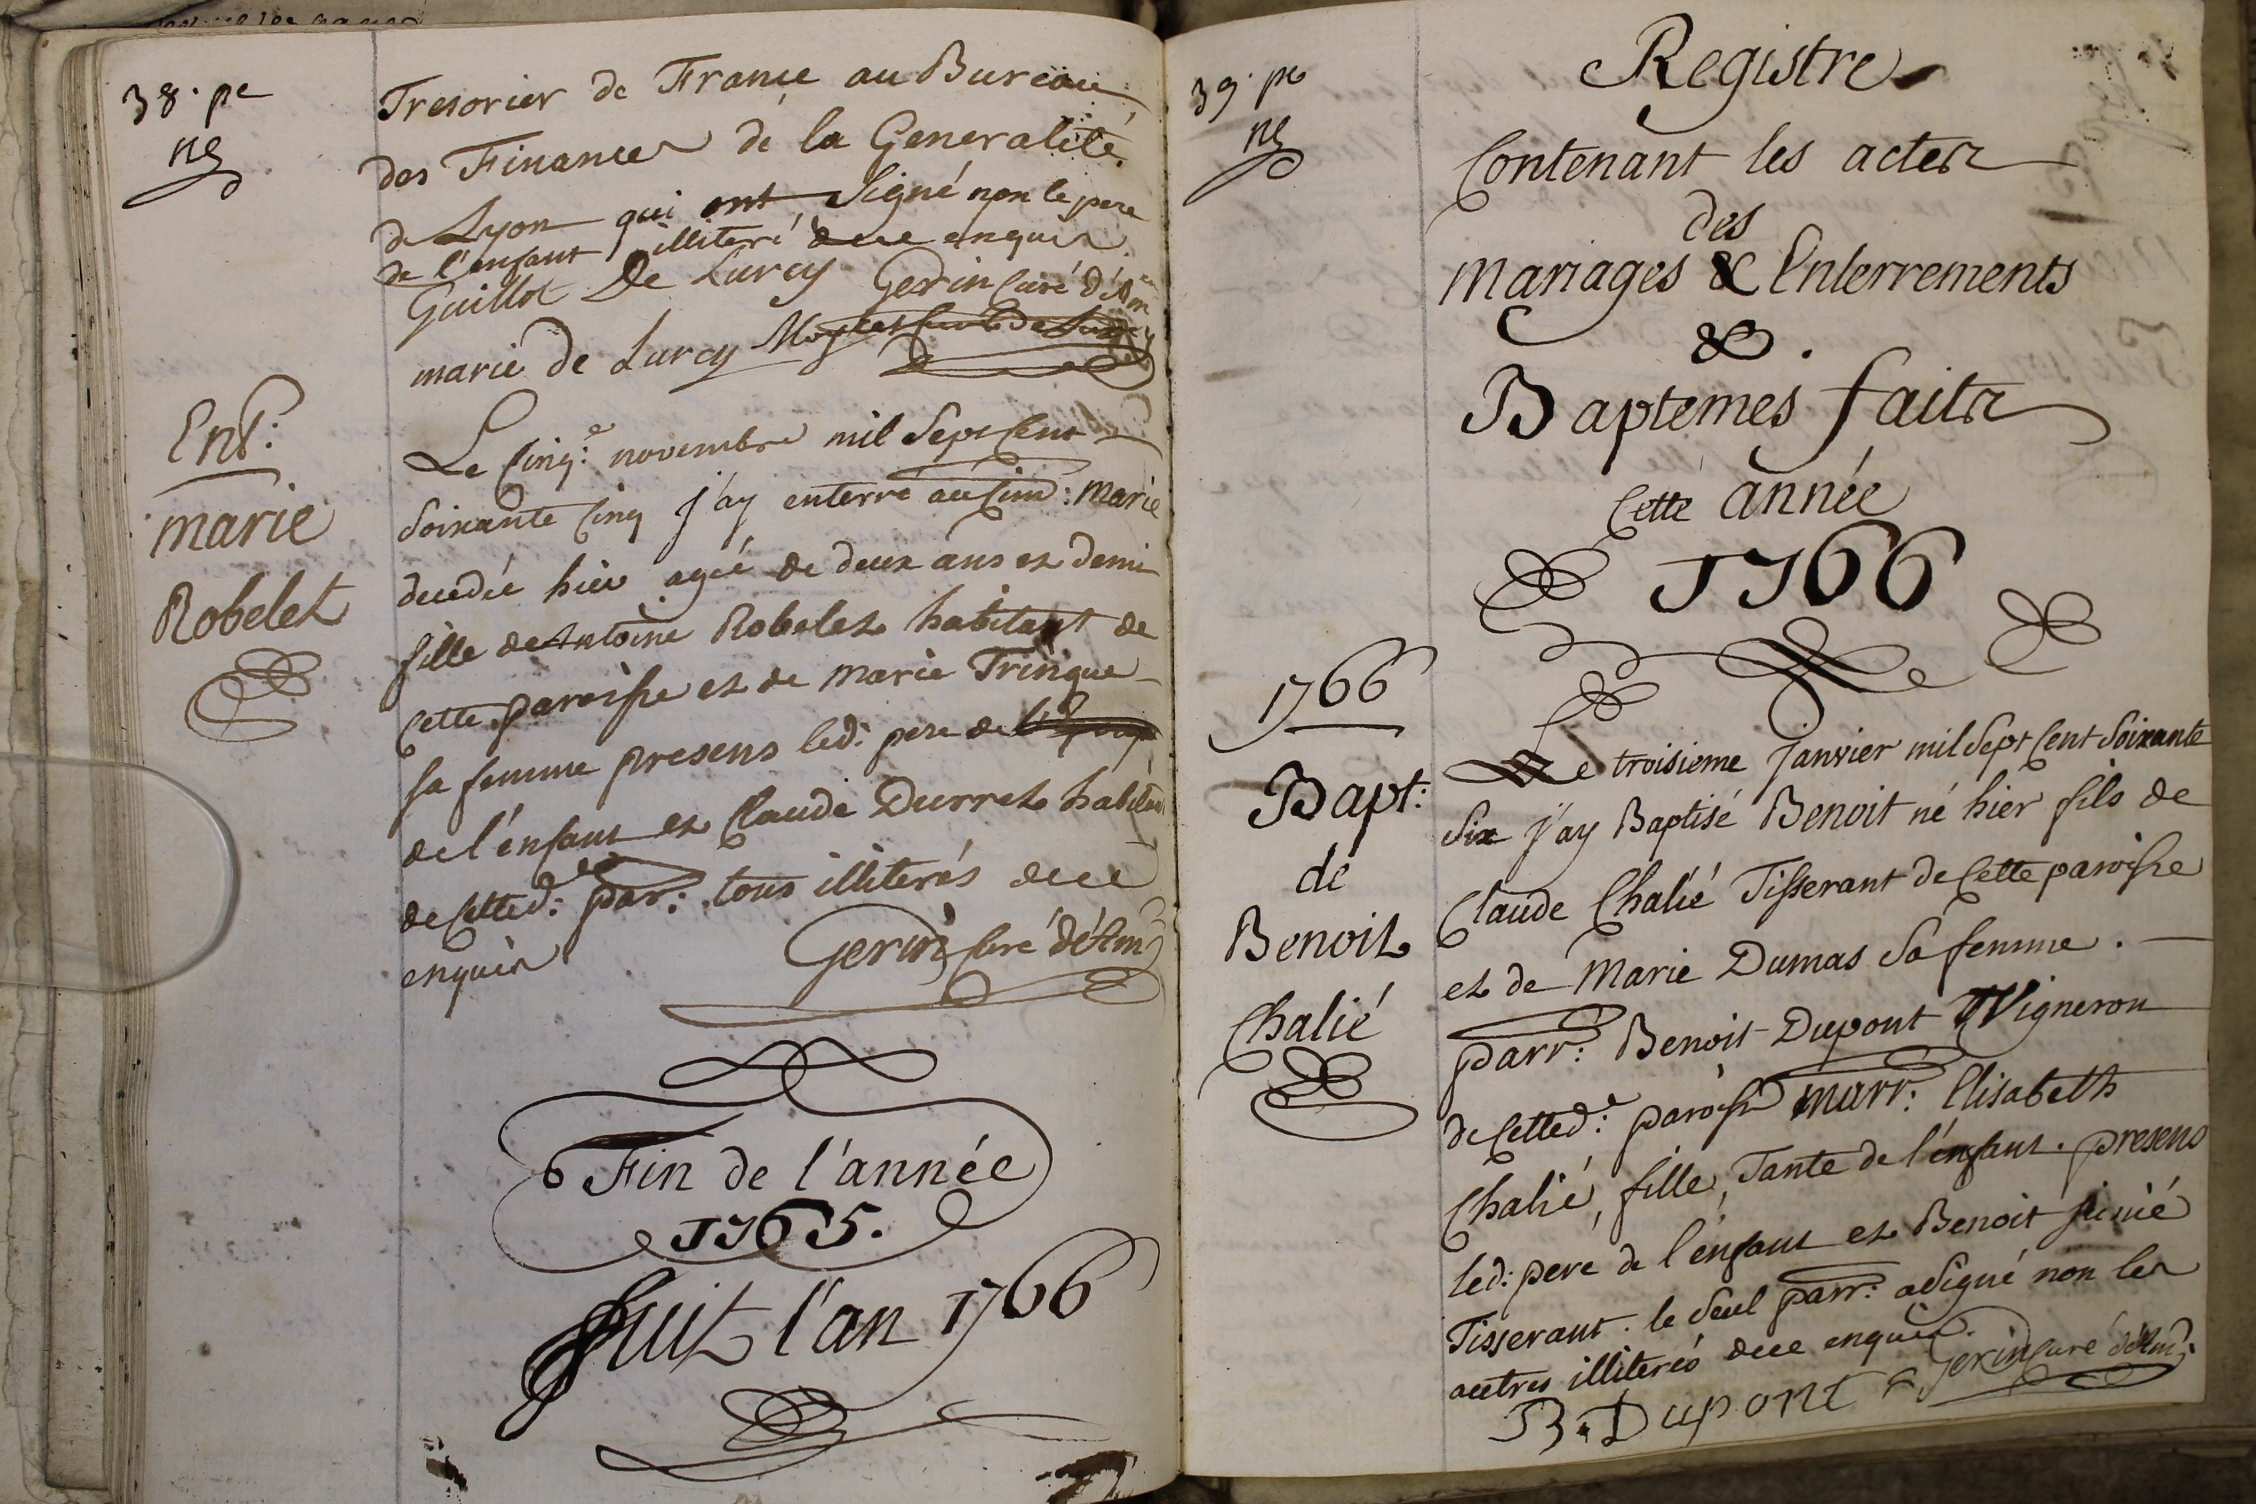 38.e pe
Tresorier de France au Bureau
des Finances de la Generalité
de Lyon qui ont signé non le pere
de l'enfant illiteré de ce enquis
Guillot De Lurcy Gerin curé d'Am
marie de Lurcy
Ent:
marie
Robelet
Le cinq.e novembre mil sept cent
soixante cinq j'ay enterré au cim: Marie
decedée hier agée de deux ans et demi
fille de Antoine Robelet habitant de
cette paroisse et de marie Trinque
sa femme presens led: pere de
de l'enfant et Claude Durret habitant
de cetted.e par: tous illiterés de ce
enquis Gerin curé d'Am
Fin de l'année
1765.
Suit l'an 1766
39. pe
Registre
Contenant les actes
des
Mariages & Enterrements
&.
Baptemes faits
Cette année
1766
1766
Bapt:
de
Benoit
Chalié
Le troisieme janvier mil sept cent soixante
six j'ay Baptisé Benoit né hier fils de
Claude Chalié Tisserant de cette paroisse
et de Marie Dumas sa femme.
parr: Benoit Dupont Vigneron
de cetted.e paroisse marr: Elisabeth
Chalié, fille, Tante de l'enfant. presens
led: pere de l'enfant et Benoit
Tisserant. le seul parr: a signé non les
autres illiterés de ce enquis.
B. Dupont Gerin curé d'Am: